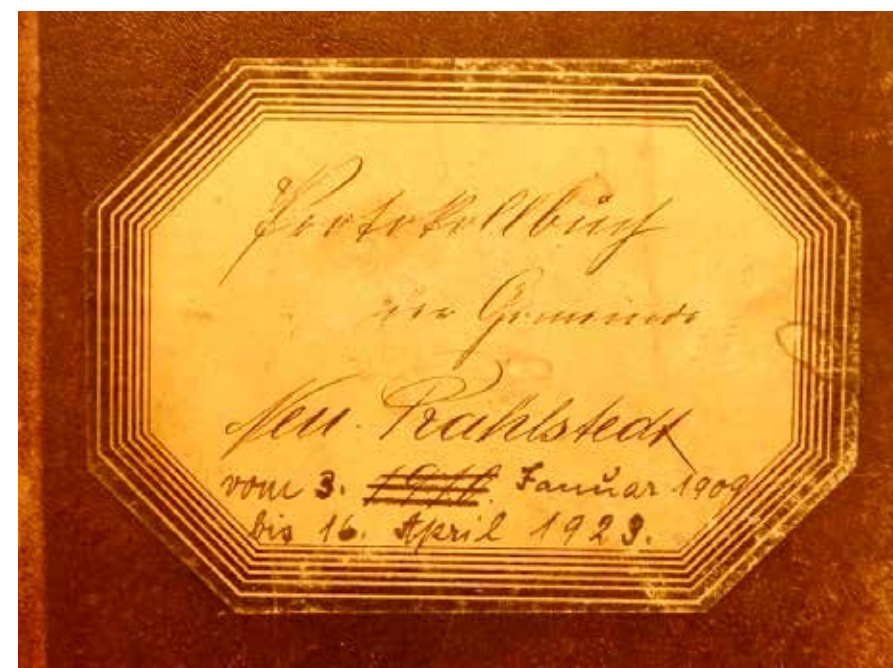 Protokollbuch
der Gemeinde
Neu-Rahlstedt
vom 3. Januar 1909
bis 16. April 1923.